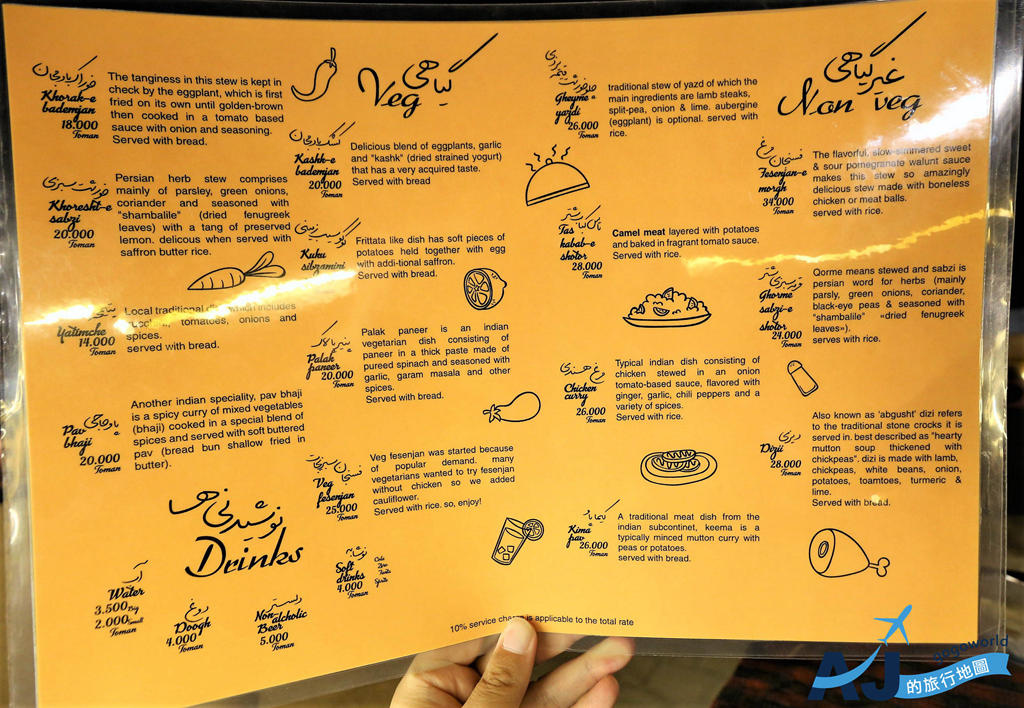 خوراک بادمجان
Khorak-e
bademjan
18.000
Toman
The tanginess in this stew is kept in
check by the eggplant, which is first
fried on its own until golden-brown
then cooked in a tomato based
sauce with onion and seasoning.
Served with bread.
خورشت سبزی
Khoresht-e
sabzi
20.000
Toman
Persian herb stew comprises
mainly of parsley, green onions,
coriander and seasoned with
"shambalile" (dried fenugreek
leaves) with a tang of preserved
lemon. delicious when served with
saffron butter rice.
Yatimche
14.000
Toman
Local traditional which includes
tomatoes, onions and
spices.
served with bread.
پاو باجی
Pav
bhaji
20.000
Toman
Another indian speciality, pav bhaji
is a spicy curry of mixed vegetables
(bhaji) cooked in a special blend of
spices and served with soft buttered
pav (bread bun shallow fried in
butter).
گیاهی
Veg
کشک بادمجان
Kashk-e
bademjan
20.000
Toman
Delicious blend of eggplants, garlic
and "kashk" (dried strained yogurt)
that has a very acquired taste.
Served with bread
کوکو سیب زمینی
Kuku
sibzamini
Frittata like dish has soft pieces of
potatoes held together with egg
with addi-tional saffron.
Served with bread.
پنیر پالاک
Palak
paneer
20.000
Toman
Palak paneer is an indian
vegetarian dish consisting of
paneer in a thick paste made of
pureed spinach and seasoned with
garlic, garam masala and other
spices.
Served with bread.
فسنجان سبزیجات
Veg
fesenjan
25.000
Toman
Veg fesenjan was started because
of popular demand. many
vegetarians wanted to try fesenjan
without chicken so we added
cauliflower.
Served with rice. so, enjoy!
نوشیدنی ها
Drinks
آب
Water
3.500 Big
2.000 Small
Toman
دوغ
Doogh
4.000
Toman
دلستر
Non-alcholic
Beer
5.000
Toman
نوشابه
Soft
drinks
4.000
Toman
غیر گیاهی
Non veg
Gheyme
yazdi
26.000
Toman
traditional stew of yazd of which the
main ingredients are lamb steaks,
split-pea, onion & lime. aubergine
(eggplant) is optional. served with
rice.
تاس کباب شتر
Tas
kabab-e
shotor
28.000
Toman
Camel meat layered with potatoes
and baked in fragrant tomato sauce.
Served with rice.
مرغ هندی
Chicken
curry
26.000
Toman
Typical indian dish consisting of
chicken stewed in an onion
tomato-based sauce, flavored with
ginger, garlic, chili peppers and a
variety of spices.
Served with rice.
کیما پاو
Kima
pav
26.000
Toman
A traditional meat dish from the
indian subcontinet, keema is a
typically minced mutton curry with
peas or potatoes.
served with bread.
فسنجان مرغ
Fesenjan-e
morgh
34.000
Toman
The flavorful, slow-simmered sweet
& sour pomegranate walunt sauce
makes this stew so amazingly
delicious stew made with boneless
chicken or meat balls.
served with rice.
قرمه سبزی شتر
Ghorme
sabzi-e
shotor
24.000
Toman
Qorme means stewed and sabzi is
persian word for herbs (mainly
parsly, green onions, coriander,
black-eye peas & seasoned with
"shambalile" «dried fenugreek
leaves»).
serves with rice.
دیزی
Dizii
28.000
Toman
Also known as 'abgusht' dizi refers
to the traditional stone crocks it is
served in. best described as "hearty
mutton soup thickened with
chickpeas". dizi is made with lamb,
chickpeas, white beans, onion,
potatoes, toamtoes, turmeric &
lime.
Served with bread.
10% service charge is applicable to the total rate
AJ
gogoworld
的旅行地圖